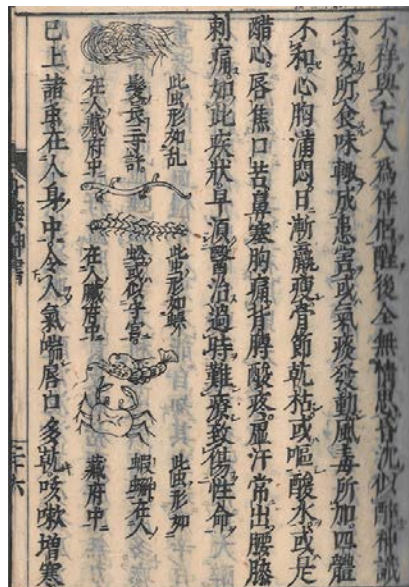 不存與亡人爲伴侶醒後全無情思昏沈似醉神識
不安所食味輙成患害或氣痰發動風毒所加四體
不和心胸滿悶日漸羸瘦骨節乾枯或嘔酸水或是
醋心唇焦口苦鼻塞胸痛背膊酸疼虛汗常出腰膝
刺痛如此疾狀早須醫治過時難療致傷性命
此虫形如乱
髮長三寸許
在人臟府中
此虫形如蜈
蚣或似守宮
在人臟府中
此虫形如
蝦蠏在人
臟府中
已上諸虫在人身中令人氣喘唇口多乾咳嗽增寒
神書
二十六